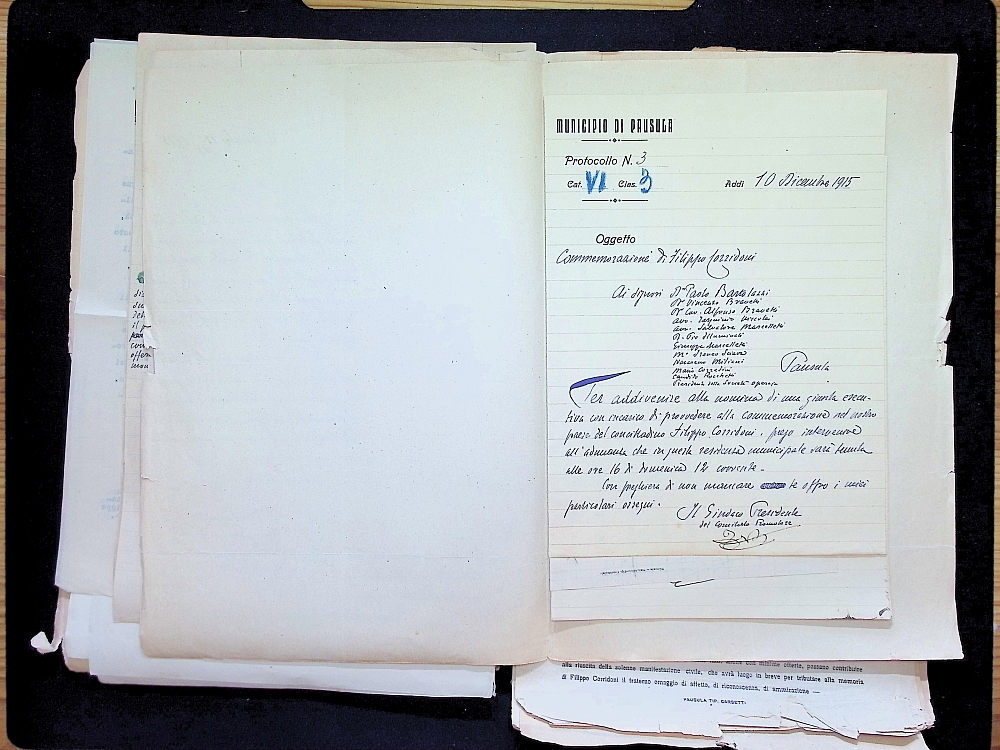 MUNICIPIO DI PAUSULA
Protocollo N. 3
Cat. VI Clas. 3
Addì 10 Dicembre 1915
Oggetto
Commemorazione di Filippo Corridoni
Ai signori Dr Paolo Bartolazzi
Dr Vincenzo
Dr Cav. Alfonso
Avv.
Avv. Salvatore Marcelletti
D. Pio Illuminati
Giuseppe Marcelletti
Mo Franco
Nazareno Miliani
Mario Corradini
Candido
Presidente della Società operaia
Pausula
Per addivenire alla nomina di una giunta esecu-
tiva con incarico di provvedere alla commemorazione nel nostro
paese del concittadino Filippo Corridoni, prego intervenire
all'adunanza che in questa residenza municipale sarà tenuta
alle ore 16 di domenica 12 corrente.
Con preghiera di non mancare te offro i miei
particolari ossequi.
Il Sindaco Presidente
del Comitato Promotore
anche con minime offerte, possano contribuire
alla riuscita della solenne manifestazione civile, che avrà luogo in breve per tributare alla memoria
di Filippo Corridoni il fraterno omaggio di affetto, di riconoscenza, di ammirazione —
PAUSULA TIP. CARSETTI